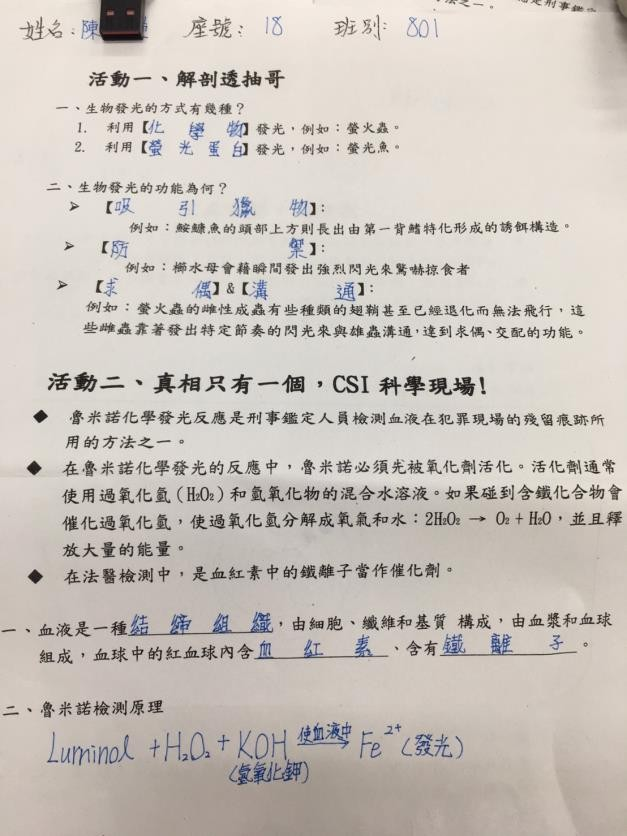 姓名：陳 座號：18 班別：801
活動一、解剖透抽哥
一、生物發光的方式有幾種？
1. 利用【化學物】發光，例如：螢火蟲。
2. 利用【螢光蛋白】發光，例如：螢光魚。
二、生物發光的功能為何？
➢ 【吸引獵物】：
例如：鮟鱇魚的頭部上方則長出由第一背鰭特化形成的誘餌構造。
➢ 【防禦】：
例如：櫛水母會藉瞬間發出強烈閃光來驚嚇掠食者
➢ 【求偶】&【溝通】：
例如：螢火蟲的雌性成蟲有些種類的翅鞘甚至已經退化而無法飛行，這
些雌蟲靠著發出特定節奏的閃光來與雄蟲溝通，達到求偶、交配的功能。
活動二、真相只有一個，CSI 科學現場！
◆ 魯米諾化學發光反應是刑事鑑定人員檢測血液在犯罪現場的殘留痕跡所
用的方法之一。
◆ 在魯米諾化學發光的反應中，魯米諾必須先被氧化劑活化。活化劑通常
使用過氧化氫（H₂O₂）和氫氧化物的混合水溶液。如果碰到含鐵化合物會
催化過氧化氫，使過氧化氫分解成氧氣和水：2H₂O₂ → O₂ + H₂O，並且釋
放大量的能量。
◆ 在法醫檢測中，是血紅素中的鐵離子當作催化劑。
一、血液是一種結締組織，由細胞、纖維和基質 構成，由血漿和血球
組成，血球中的紅血球內含血紅素、含有鐵離子。
二、魯米諾檢測原理
Luminol + H₂O₂ + KOH 使血液中→ Fe²⁺（發光）
（氫氧化鉀）